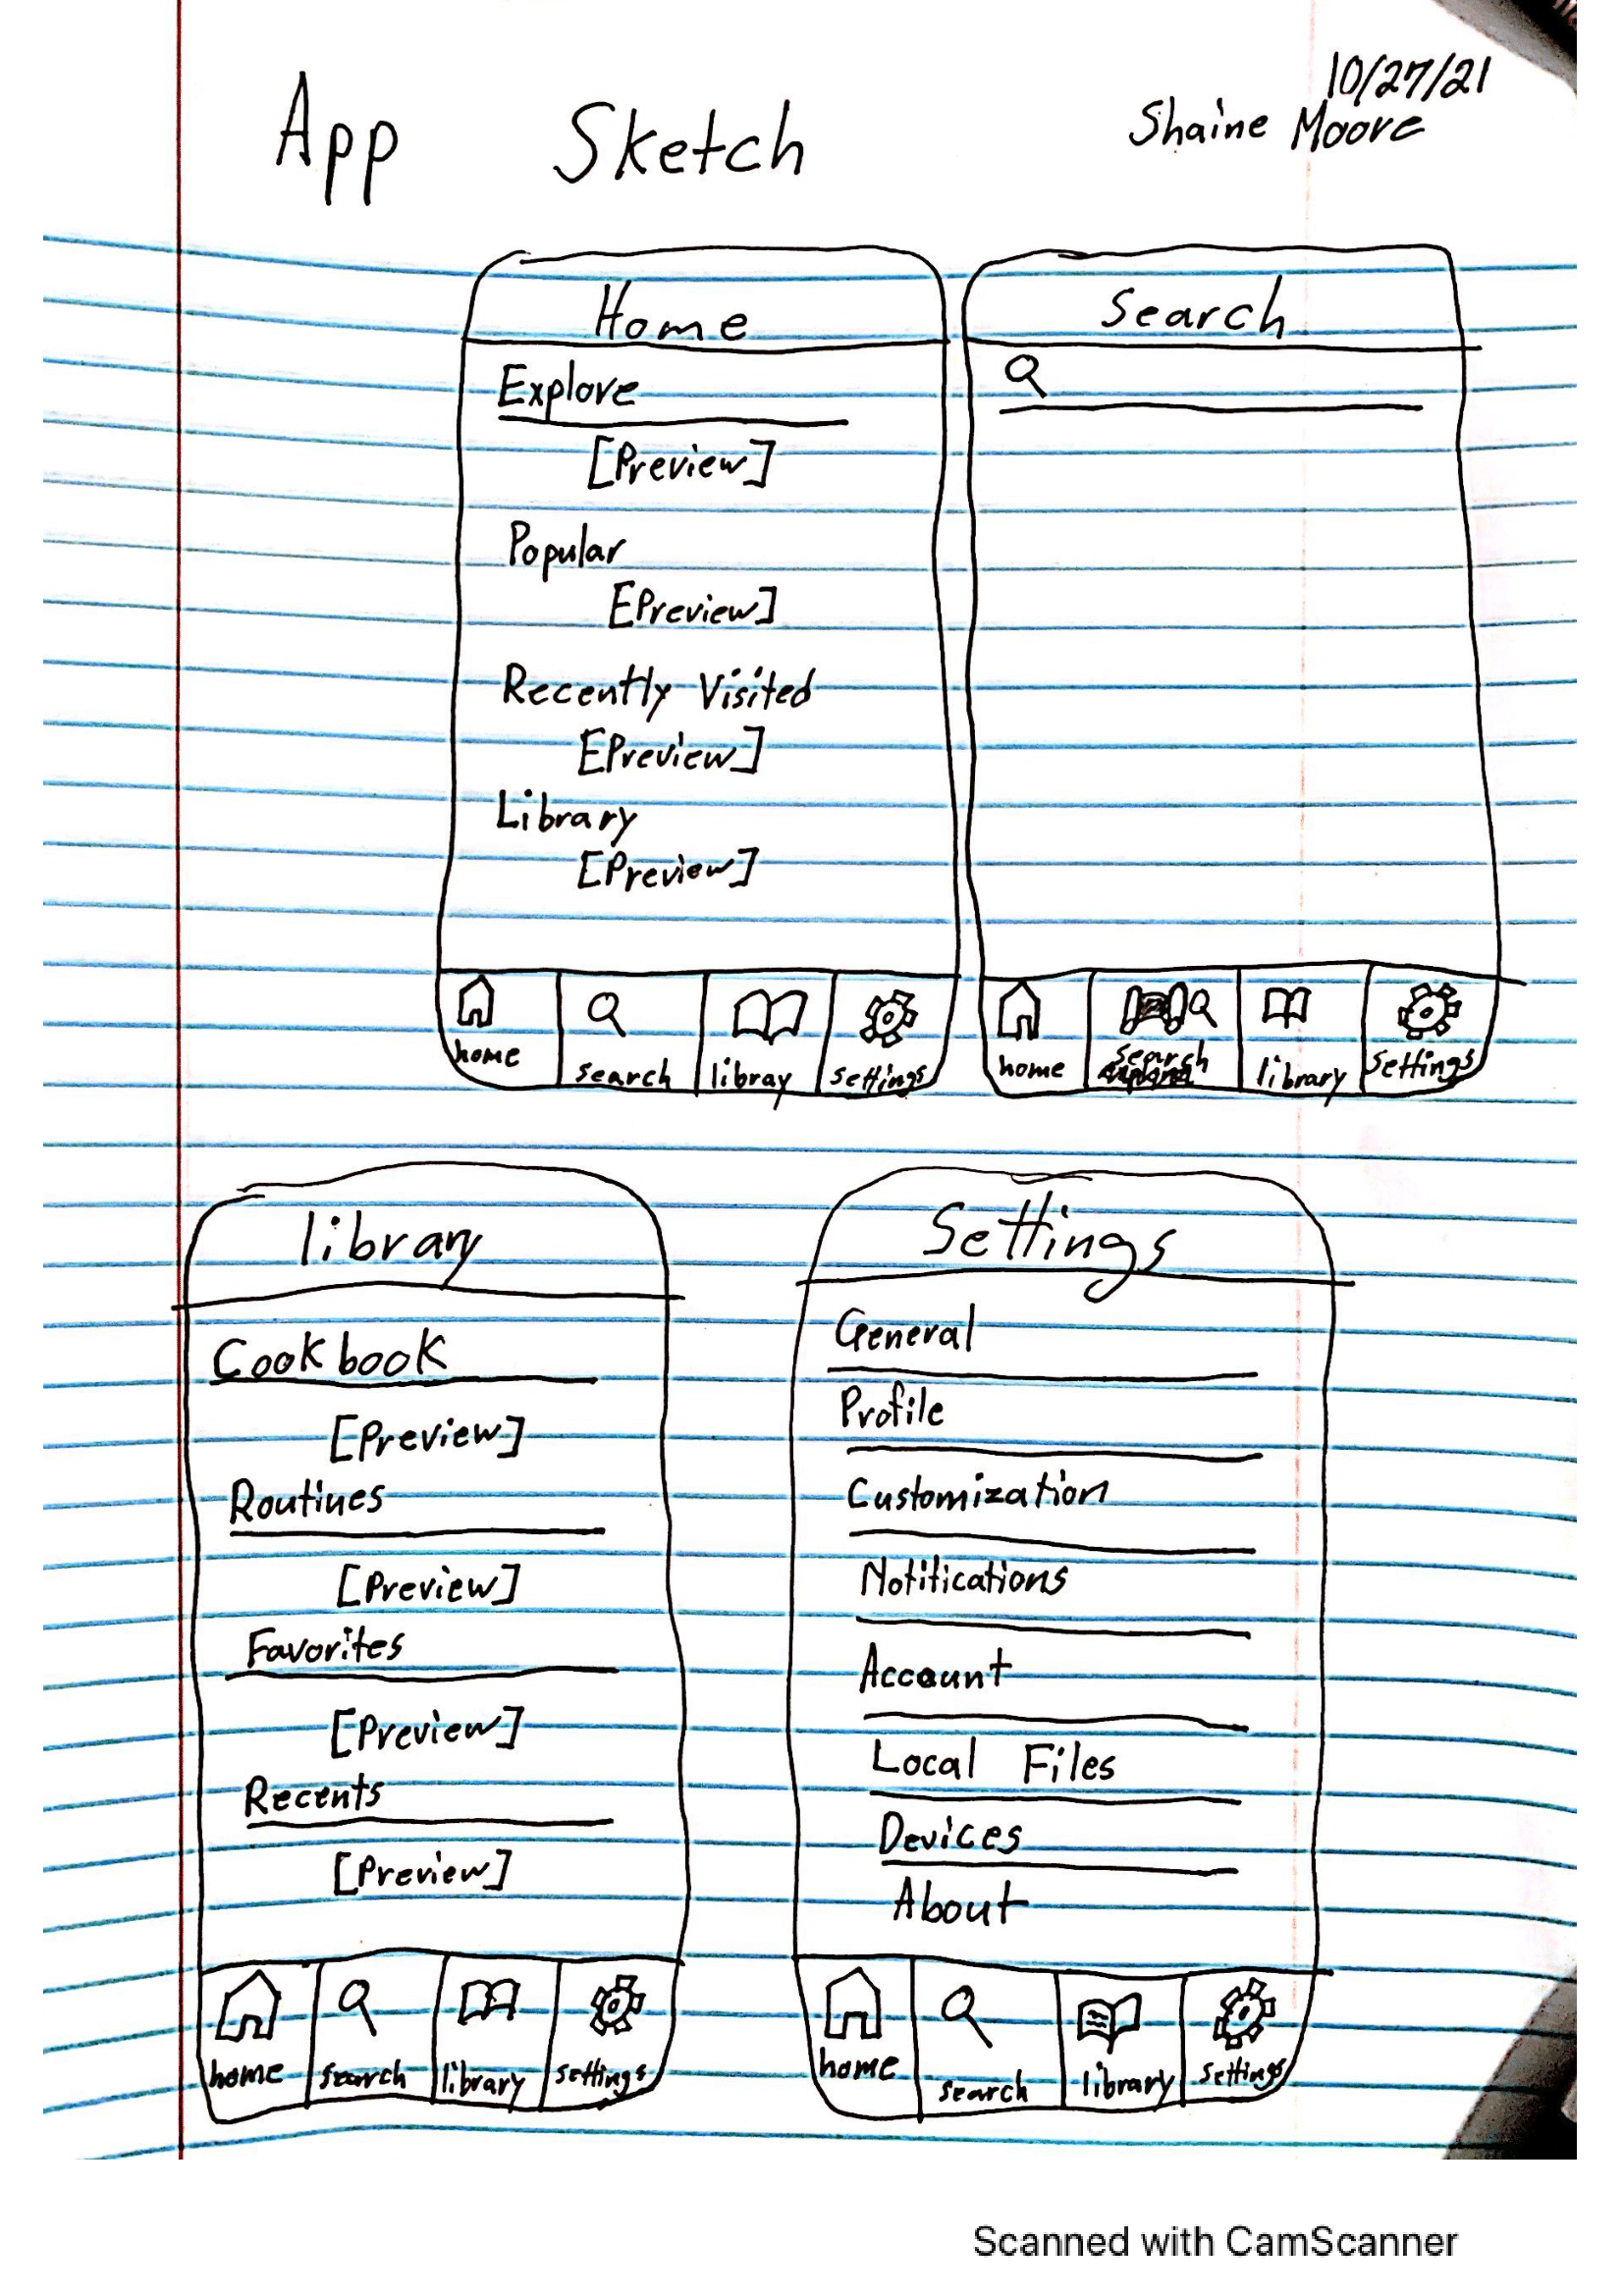 10/27/21
App Sketch
Shaine Moore
Home
Explore
[Preview]
Popular
[Preview]
Recently Visited
[Preview]
Library
[Preview]
home search libray settings
Search
home search library settings
library
Cookbook
[Preview]
Routines
[Preview]
Favorites
[Preview]
Recents
[Preview]
home search library settings
Settings
General
Profile
Customization
Notifications
Account
Local Files
Devices
About
home search library settings
Scanned with CamScanner